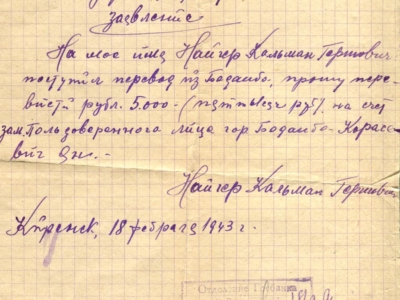 заявление
На мое имя Найгер Кальман Гершович
поступил перевод из Бодайбо, прошу пере-
вести рубл. 5.000- (пять тысяч руб). на счет
зам. Польздоверенного лица гор Бодайбо - Карасе-
вич Ян. -
Найгер Кальман Гершович
Киренск, 18 февраля 1943 г.
Отделение Госбанка